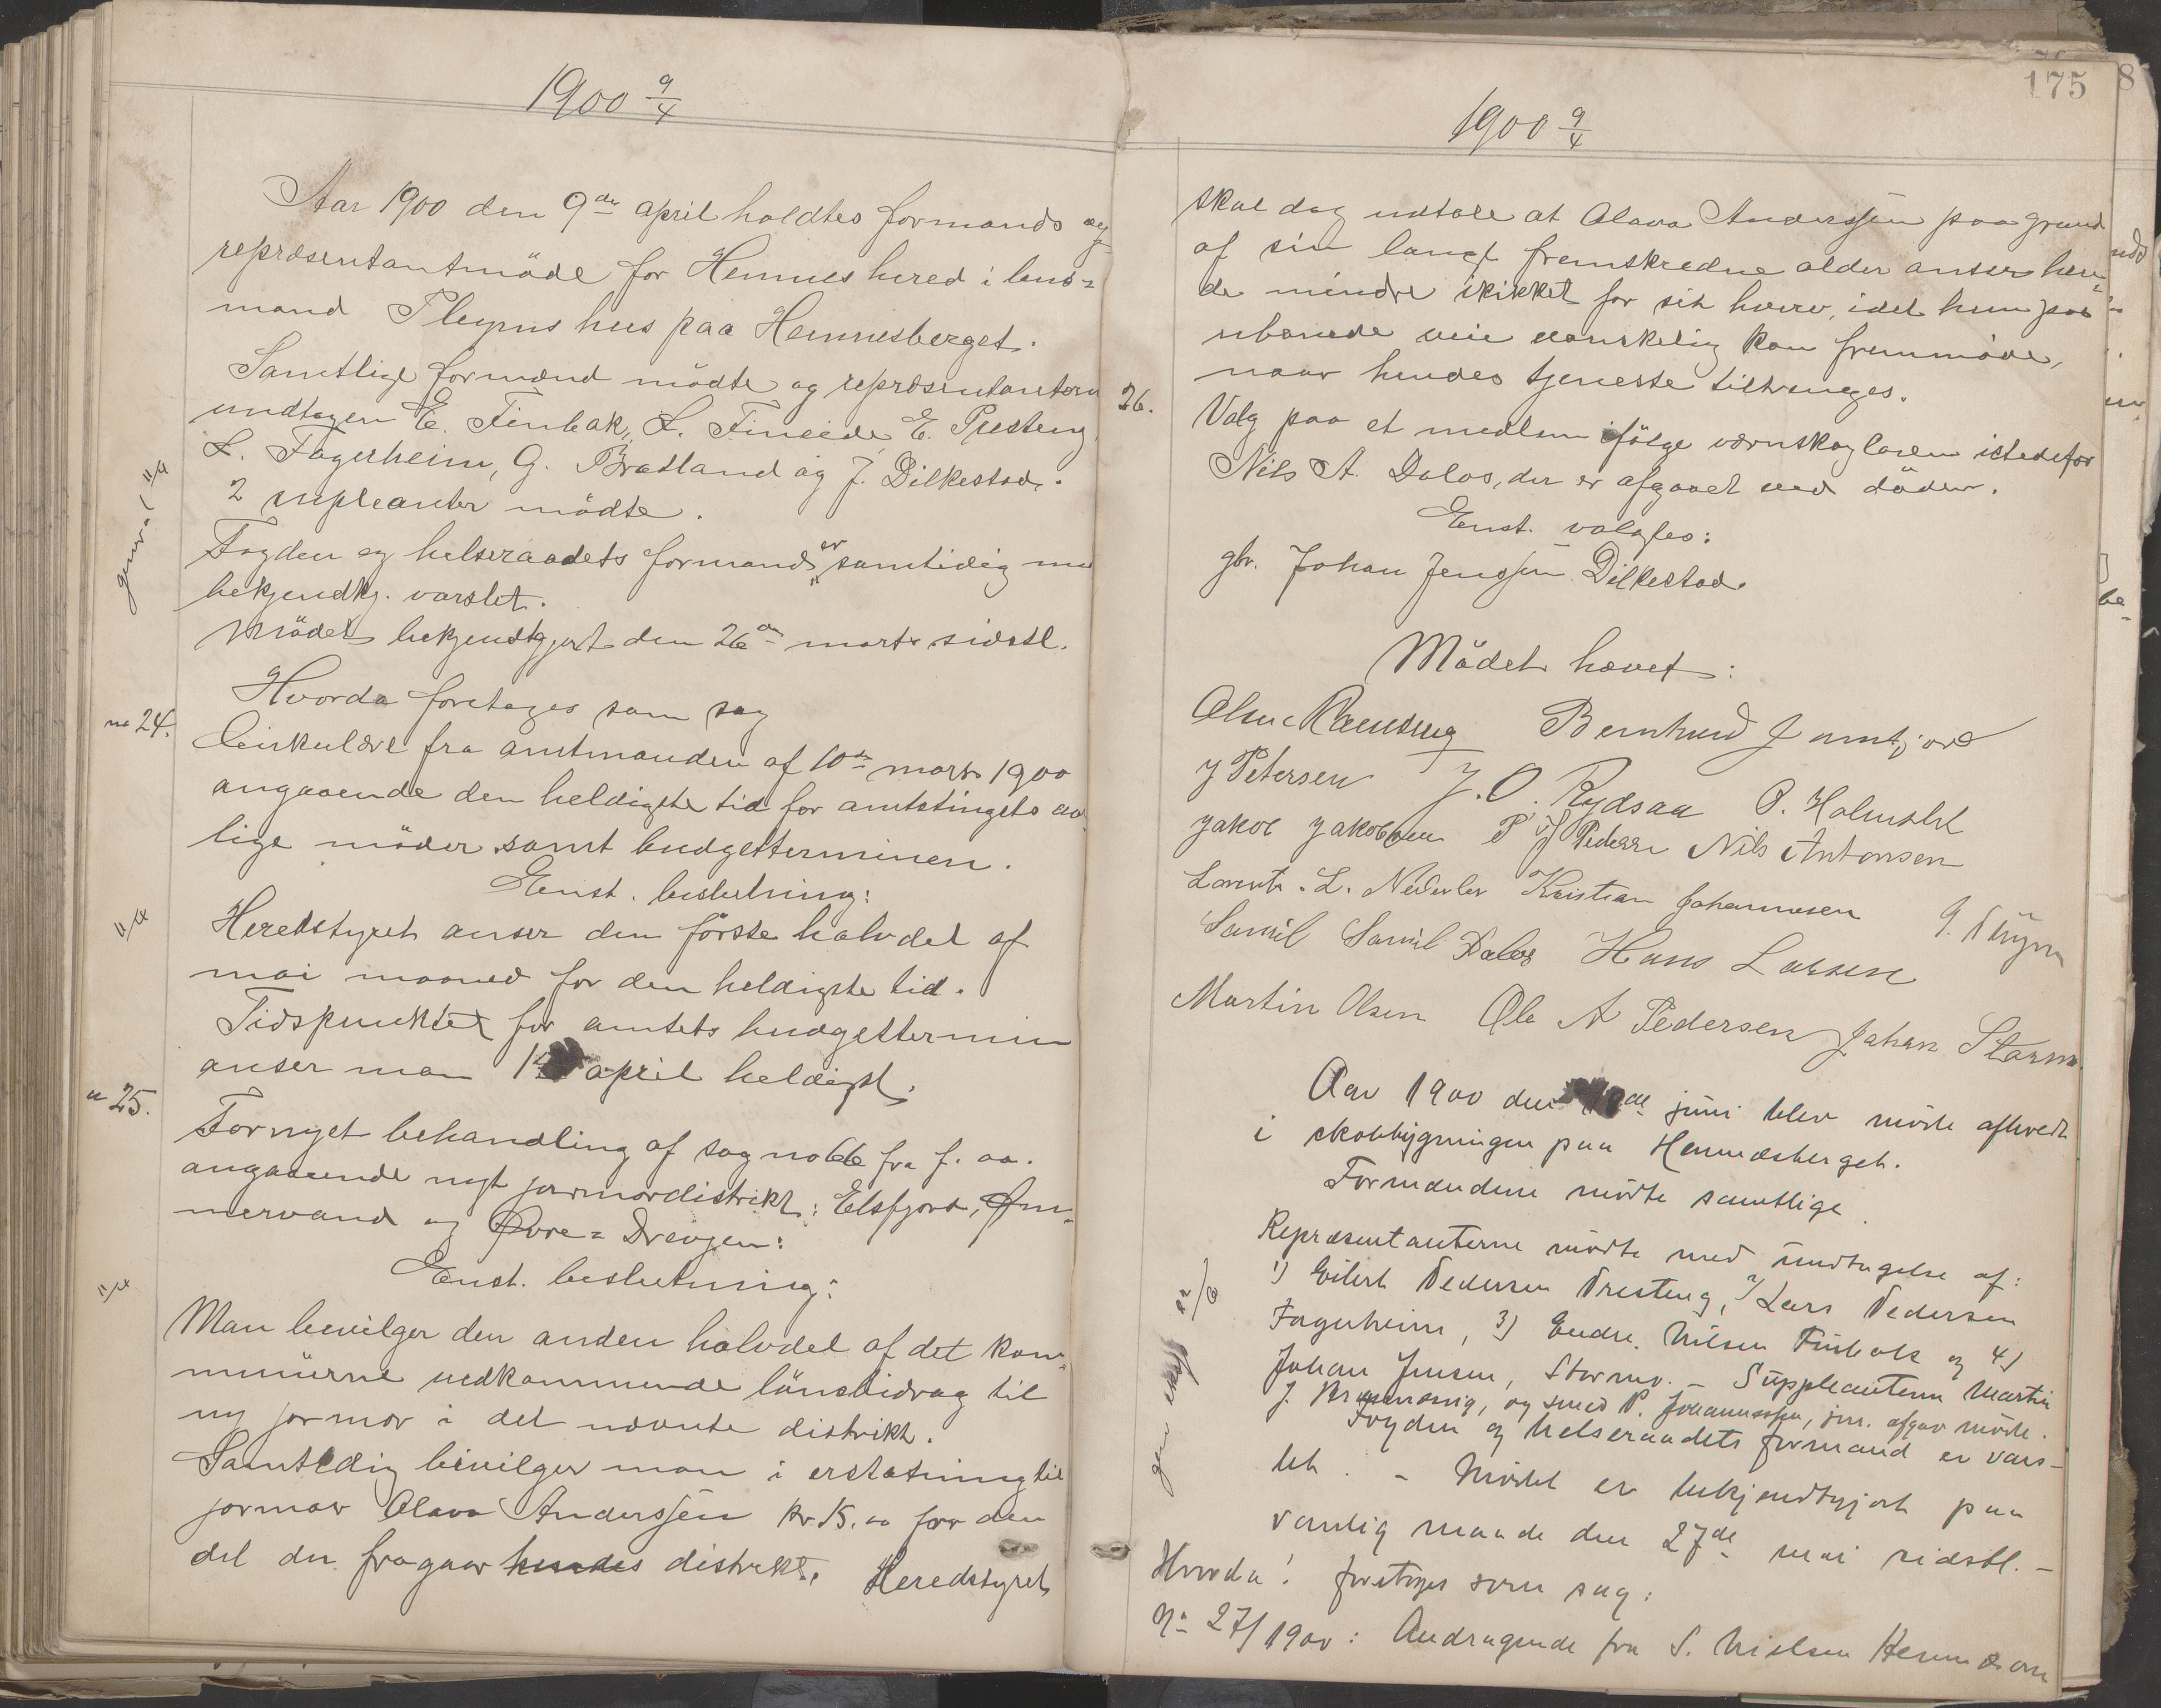 1900 9/4
Aar 1900 den 9de april holdtes formands og
repræsentantmöde for Hemnes hered i lens=
mand Pleyms hus paa Hemnesberget.
Samtlige formænd mödte og repræsentanterne
undtagen E. Finbak, L. Fineide, E. Presteng,
L. Fagerheim, G. Bratland og J. Dilkestad.
2 supleanter mödte.
Fogden og helseraadets formand er samtidig med
bekjendtgj. varslet.
Mödet bekjendtgjort den 26de marts sidstl.
Hvorda foretoges som sag
no 24. Cirkulære fra amtmanden af 10de marts 1900
angaaende den heldigste tid for amtstingets aar
lige möder samt budgetterminen.
Enst. beslutning:
11/4
Heredstyret anser den förste halvdel af
mai maaned for den heldigste tid.
Tidspunktet for amtets budgettermin
anser man 1ste april heldigst.
" 25.
Fornyet behandling af sag no 66 fra f. aa.
angaaende nyt jormordistrikt: Elsfjord, Øm=
mervand og Øvre=Drevjen:
Enst. beslutning:
11/4
Man bevilger den anden halvdel af det kom=
munerne vedkommende lönsbidrag til
ny jormor i det nævnte distrikt.
Samtidig bevilger man i erstatning til
jormor Olava Anderssen kr 15.00 for den
del der fragaar hendes distrikt. Heredstyret
175
1900 9/4
skal dog udtale at Olava Anderssen paa grund
af sin langt fremskredne alder anser hen=
de mindre skikket for sit hverv, idet hun paa
ubanede veie vanskelig kan fremmöde,
naar hendes tjeneste tiltrænges.
26. Valg paa et medlem ifölge værnskogloven istedetfor
Nils A. Dalos, der er afgaaet ved döden.
Enst. valgtes:
gbr. Johan Jenssen Dilkestad.
Mödet hævet:
Bernhard Jamtjord
J Petersen J. O. Rydsaa O. Holmslet
Jakob Jakobsen P J Pederse Nils Antonsen
Lorents. L. Nederler Kristian Johannesen
Samil Samil Dalos Hans Larsen
Martin Olsen Ole A Pedersen Johan Storm
Aar 1900 den de juni blev möde afholdt
i skolebygningen paa Hemnæsberget.
Formændene mödte samtlige.
Repræsentanterne mödte med undtagelse af:
1) Eilert Pedersen Presteng, 2) Lars Pedersen
Fagerheim, 3) Endre Nilsen Finbak og 4)
Johan Jensen, Stormo. – Suppleanterne Martin
J. og smed P. Johannessen, jun. afgav möde.
Fogden og helseraadets formand er vars–
let. – Mödet er bekjendtgjort paa
vanlig maade den 27de mai sidstl. –
Hvorda! foretoges som sag:
No 27/1900: Andragende fra S. Nielsen Hemnæs om